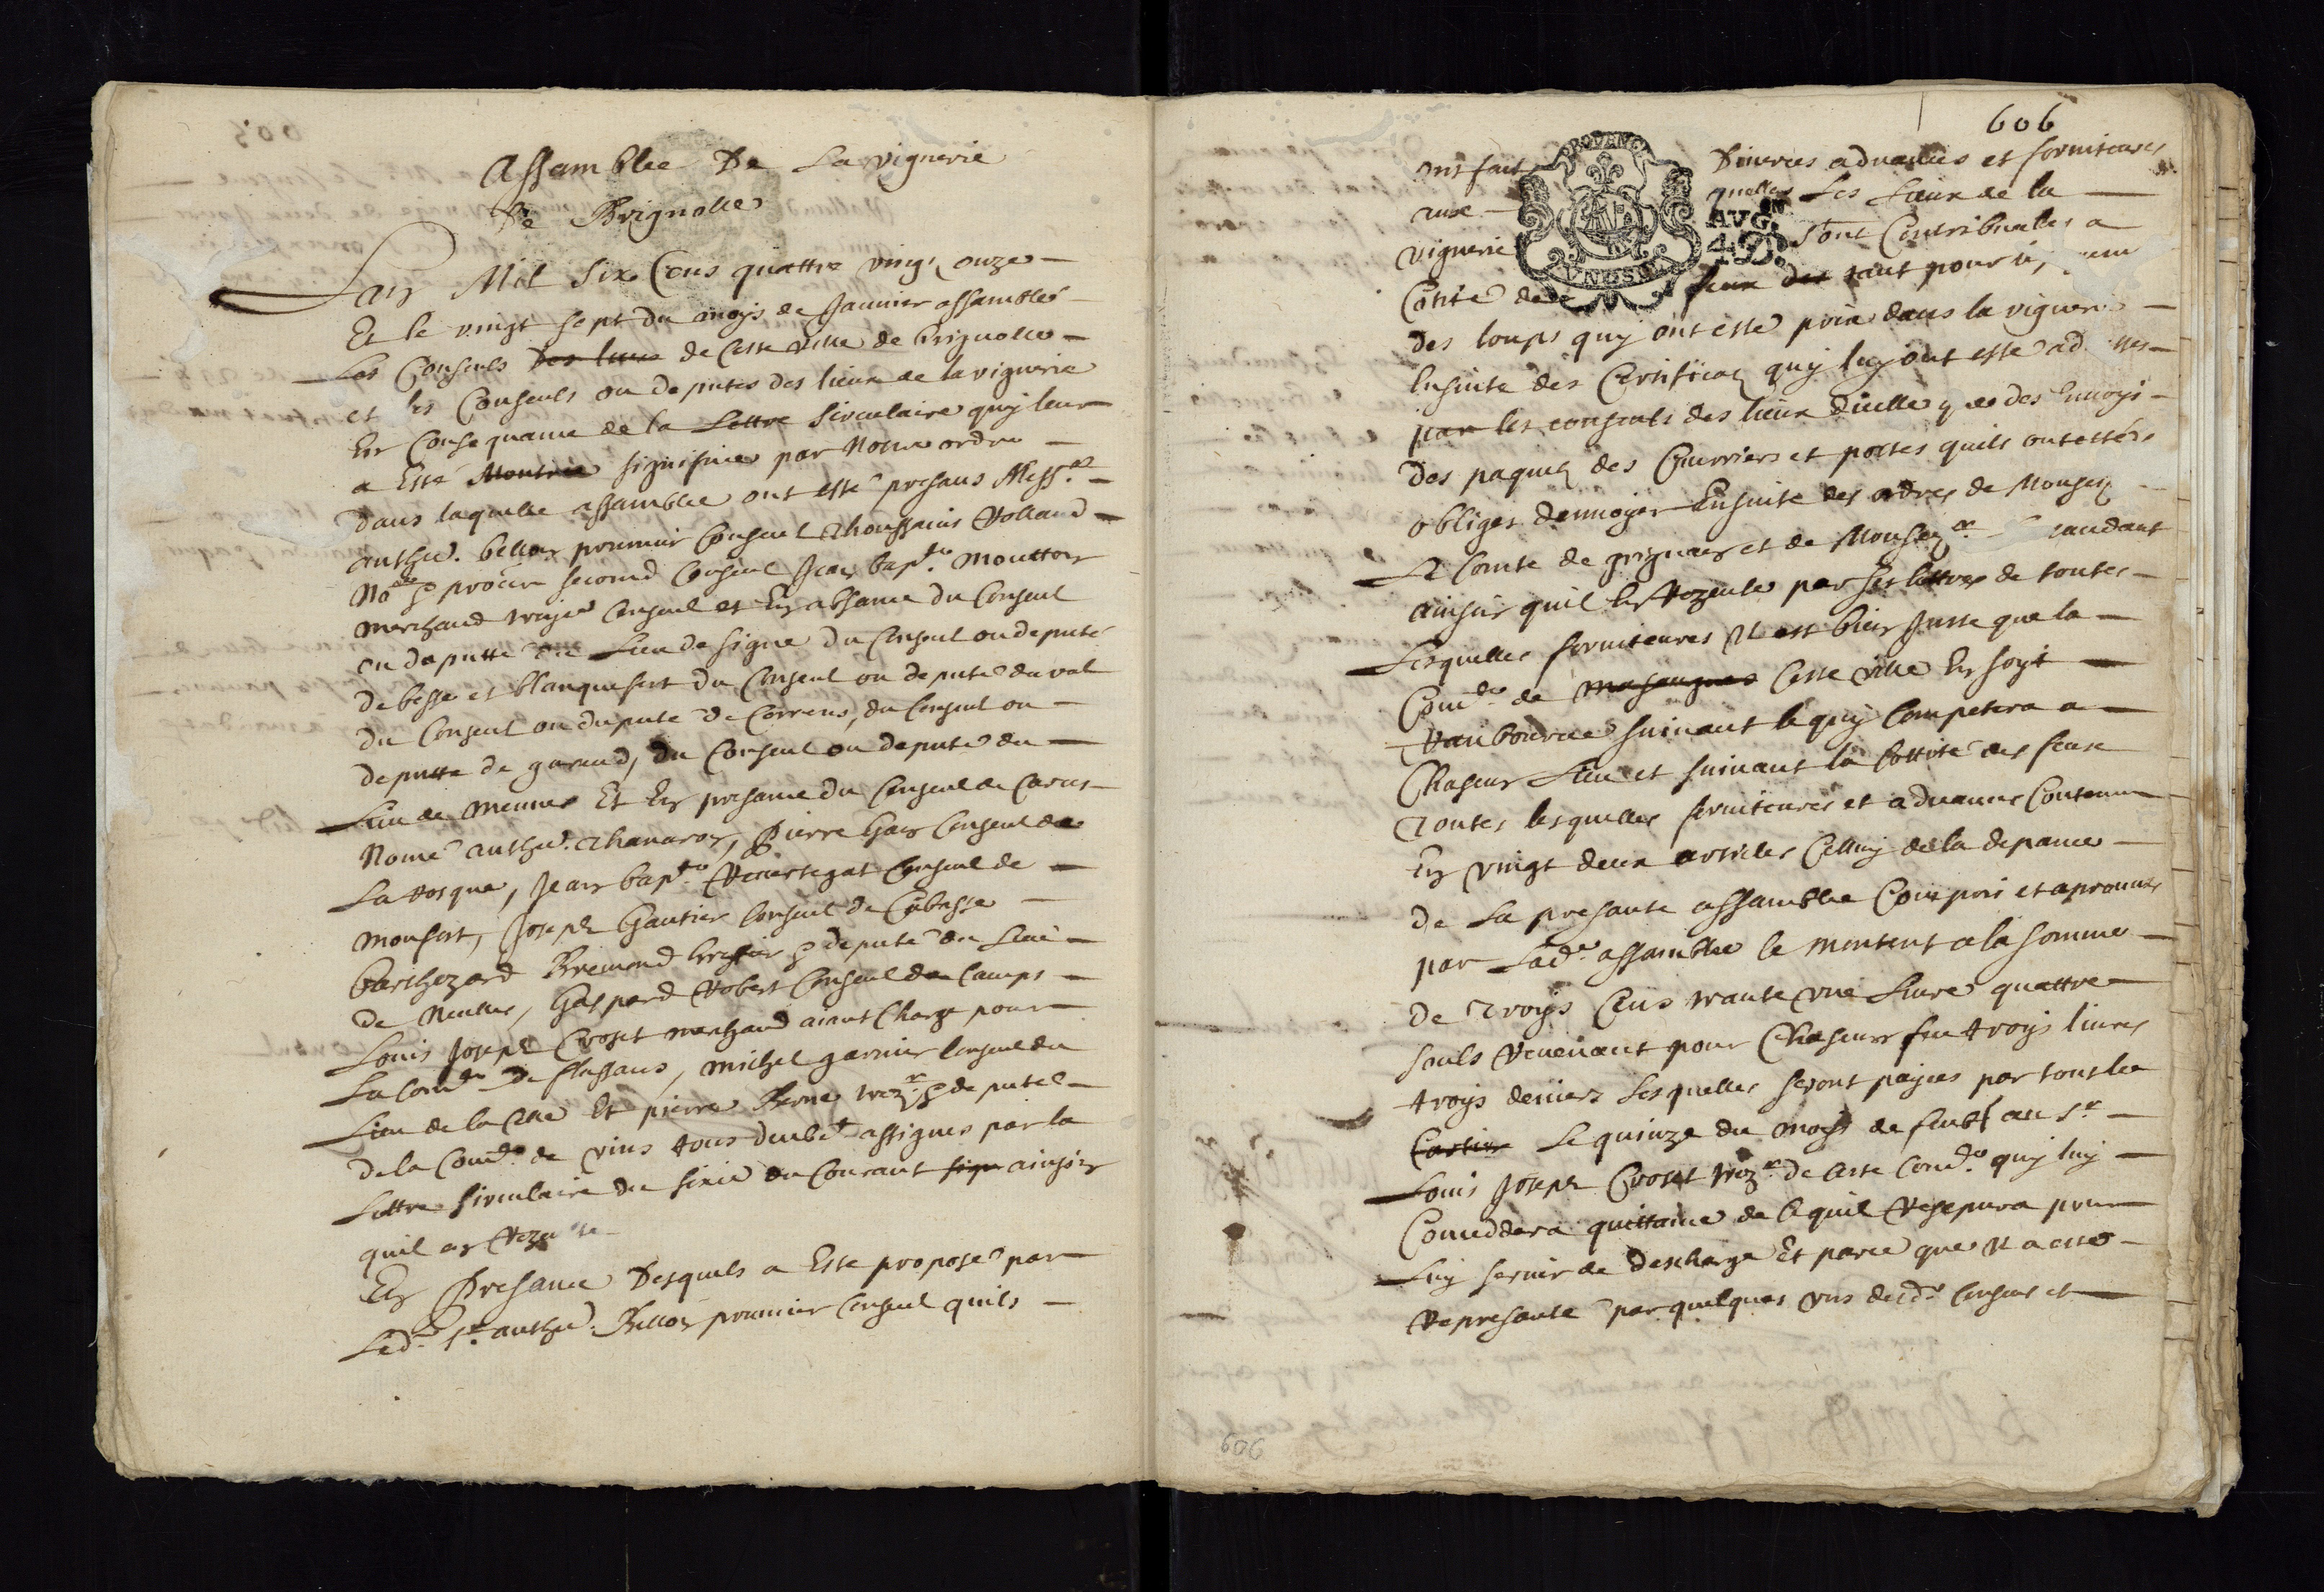 Assamblee De La viguerie
De Brignolle
Lan Mil Six Cens quattre vingt onze
Et le vingt sept du moys de Janvier assamblés
Les Consuls des lieux de Ceste ville de Brignolle
et les Conseuls ou deputes des lieux de la viguerie
En Consequance de la Lettre Sirculaire quy leur
a Esté Montrée signifiiée par Nostre ordre
Dans laquelle assamblee ont esté presans Messrs
anthe. bellon prumier Consul Thoussains Volland
No.re et procur. second Consul Jean bap.te Moutton
merchand troyje Consul et En absance du Consul
ou deputte du Lieu de Signe du Consul ou deputé
de besse et blanquefort du Consul ou deputé du val
du Consul ou depute de Correns, du Consul ou
deputte de gareud, du Consul ou deputé du
Lieu de Meunes Et En presance du Consul de Carces
Nomé anthe. Thanaron, Pierre Gan Consul de
La Rosque, Jean bap.te Consul de
Monfort, Joseph Gautier Consul de Cabasse
Barthezard Bremond et deputé du Lieu
de Neulles, Gaspard Robert Consul de Camps
Louis Joseph Crozet merchand aiant Charge pour
La Com.té de flassans, Michel garnier Consul du
Lieu de la Celle Et pierre Berne trez.r et deputé
de la Com.té de vins tous deubt assignes par la
Lettre Sirculaire du sixié du Courant sign ainsin
quil en Rezulte
En Presance Desquels a Este proposé par
Led. Sr. anthe. Bellon prumier Consul quils
606
ont fait Diverces advances et fornitures
auxquelles Les Lieux de la
viguerie Sont Contribuables a
Cotité de feux des tant pour
des loups quy ont esté prins dans la viguerie
Ensuite des Certificatz quy luy ont esté
par les consuls des lieux Dicelle que des Envoys
Des paquetz des Courriers et postes quils ont estés
obliges denvoyer Ensuite des ordres de Monseigr
Le Comte de grignan et de Monseigr
ainsin quil En Rezulte par ses lettres de toutes
Lesquelles fornitures Il est bien Juste que la
Com.té de Ceste ville En soyt
Ranbourcee suivant le quy Competera a
Chascun Lieu et suivant la Cottité des feux
Toutes lesquelles fornitures et advances Contenues
En vingt deux articles Celluy de la depance
de La presante assamblee Compris et aprouvés
par Lad. assamblee se montent a la somme
de Troys Cens trante une Livre quattre
souls Revenant pour Chascun feu troys livres
troys deniers Lesquelles seront payees par tout le
Cartier Le quinze du moys de feubr au sr
Louis Joseph Crozet trez.r de ceste Com.té quy luy
Conceddera quittance de ce quil Resepvra pour
Luy servir de descharge Et parce que Il a esté
Represanté par quelques uns desd. Consuls et
PROVENCE
AVG.ON
4 D.
UN SOL
606